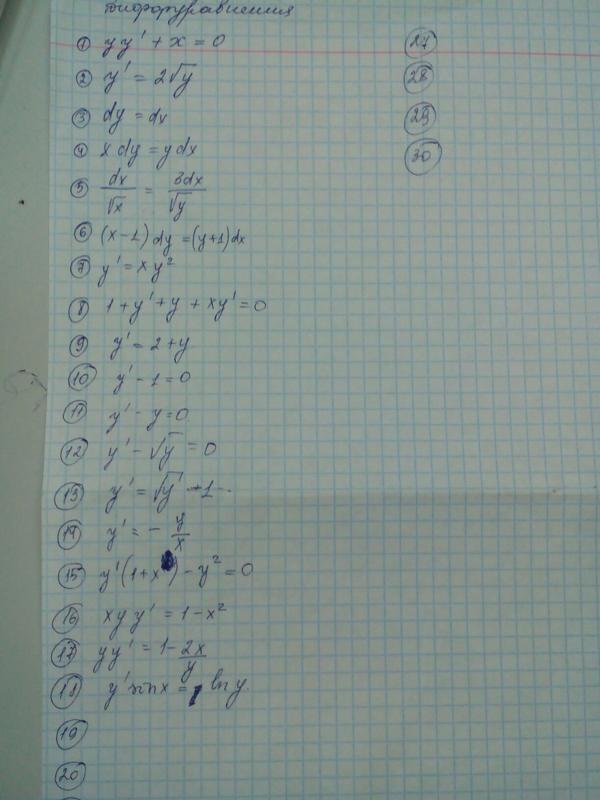 Диффуравнения
① yy' + x = 0
② y' = 2√y
③ dy = dx
④ x dy = y dx
⑤ dx/√x = 3dx/√y
⑥ (x-1) dy = (y+1) dx
⑦ y' = xy²
⑧ 1 + y' + y + xy' = 0
⑨ y' = 2 + y
⑩ y' - 1 = 0
⑪ y' - y = 0
⑫ y' - √y = 0
⑬ y' = √y + 1
⑭ y' = - y/x
⑮ y'(1+x) - y² = 0
⑯ xyy' = 1 - x²
⑰ yy' = 1 - 2x/y
⑱ y' sin x = ln y.
⑲
⑳
㉗
㉘
㉙
㉚